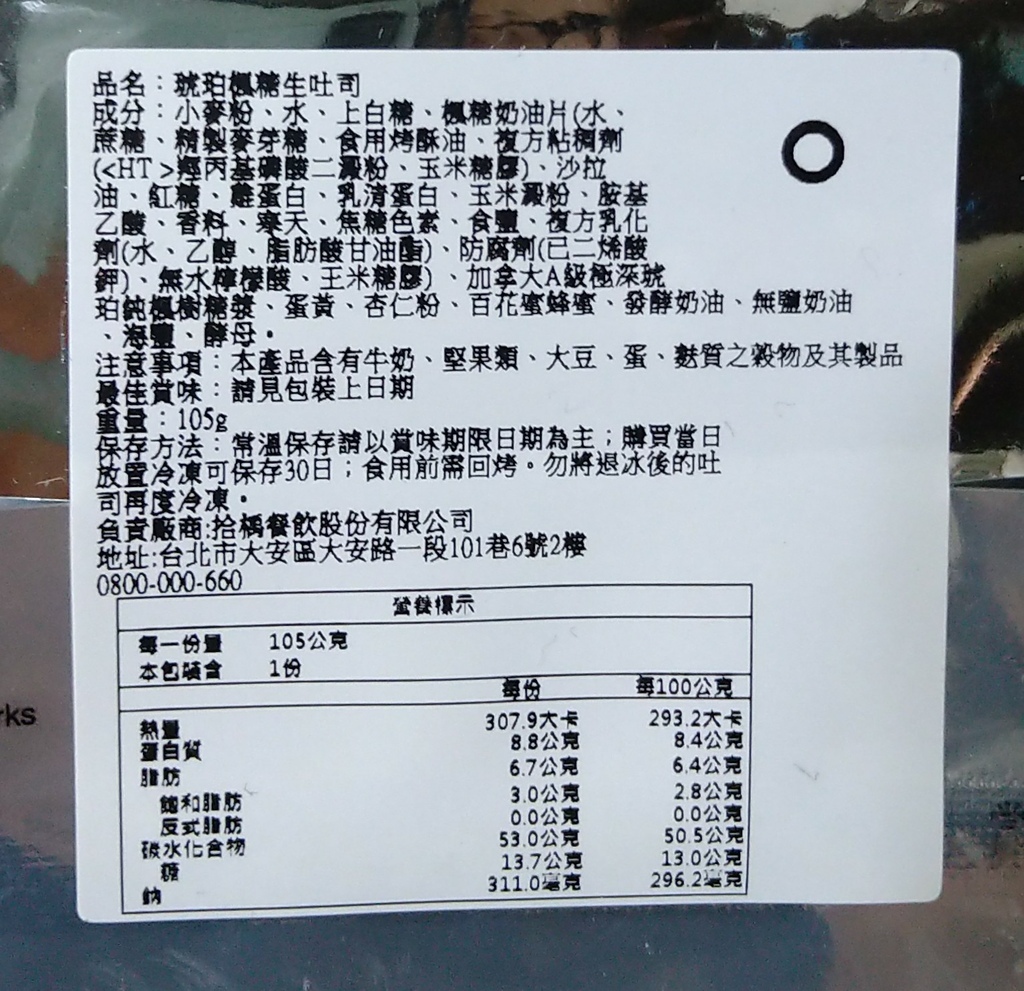 品名：琥珀楓糖生吐司
成分：小麥粉、水、上白糖、楓糖奶油片(水、
蔗糖、精製麥芽糖、食用烤酥油、複方粘稠劑
(<HT>羥丙基磷酸二澱粉、玉米糖膠)、沙拉
油、紅糖、雞蛋白、乳清蛋白、玉米澱粉、胺基
乙酸、香料、寒天、焦糖色素、食鹽、複方乳化
劑(水、乙醇、脂肪酸甘油酯)、防腐劑(已二烯酸
鉀)、無水檸檬酸、玉米糖膠)、加拿大A級極深琥
珀純楓樹糖漿、蛋黃、杏仁粉、百花蜜蜂蜜、發酵奶油、無鹽奶油
、海鹽、酵母。
注意事項：本產品含有牛奶、堅果類、大豆、蛋、麩質之穀物及其製品
最佳賞味：請見包裝上日期
重量：105g
保存方法：常溫保存請以賞味期限日期為主；購買當日
放置冷凍可保存30日；食用前需回烤。勿將退冰後的吐
司再度冷凍。
負責廠商:拾楀餐飲股份有限公司
地址:台北市大安區大安路一段101巷6號2樓
0800-000-660
營養標示
每一份量 105公克
本包裝含 1份
每份 每100公克
熱量 307.9大卡 293.2大卡
蛋白質 8.8公克 8.4公克
脂肪 6.7公克 6.4公克
飽和脂肪 3.0公克 2.8公克
反式脂肪 0.0公克 0.0公克
碳水化合物 53.0公克 50.5公克
糖 13.7公克 13.0公克
鈉 311.0毫克 296.2毫克
rks